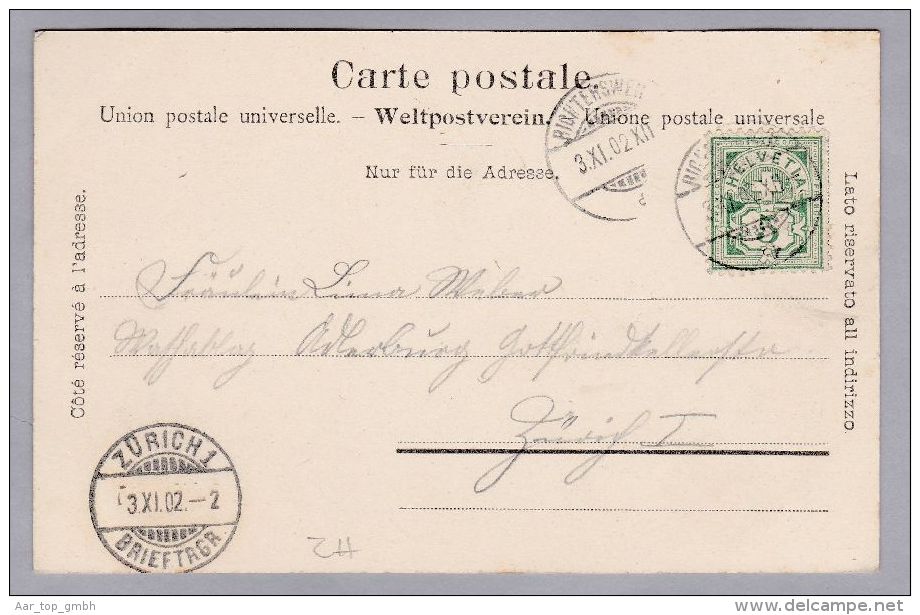 Carte postale.
Union postale universelle. – Weltpostverein. – Unione postale universale
Nur für die Adresse.
RICHTERSWEIL
3.XI.02.XII
HELVETIA
5
Côté réservé à l'adresse.
Lato riservato all indirizzo.
Fräulein Lina Weber
Adlerburg Gottfriedkellerstr
Zürich I
ZÜRICH 1
3.XI.02.–2
BRIEFTRGR
#2
Aar_top_gmbh
delcampe.net